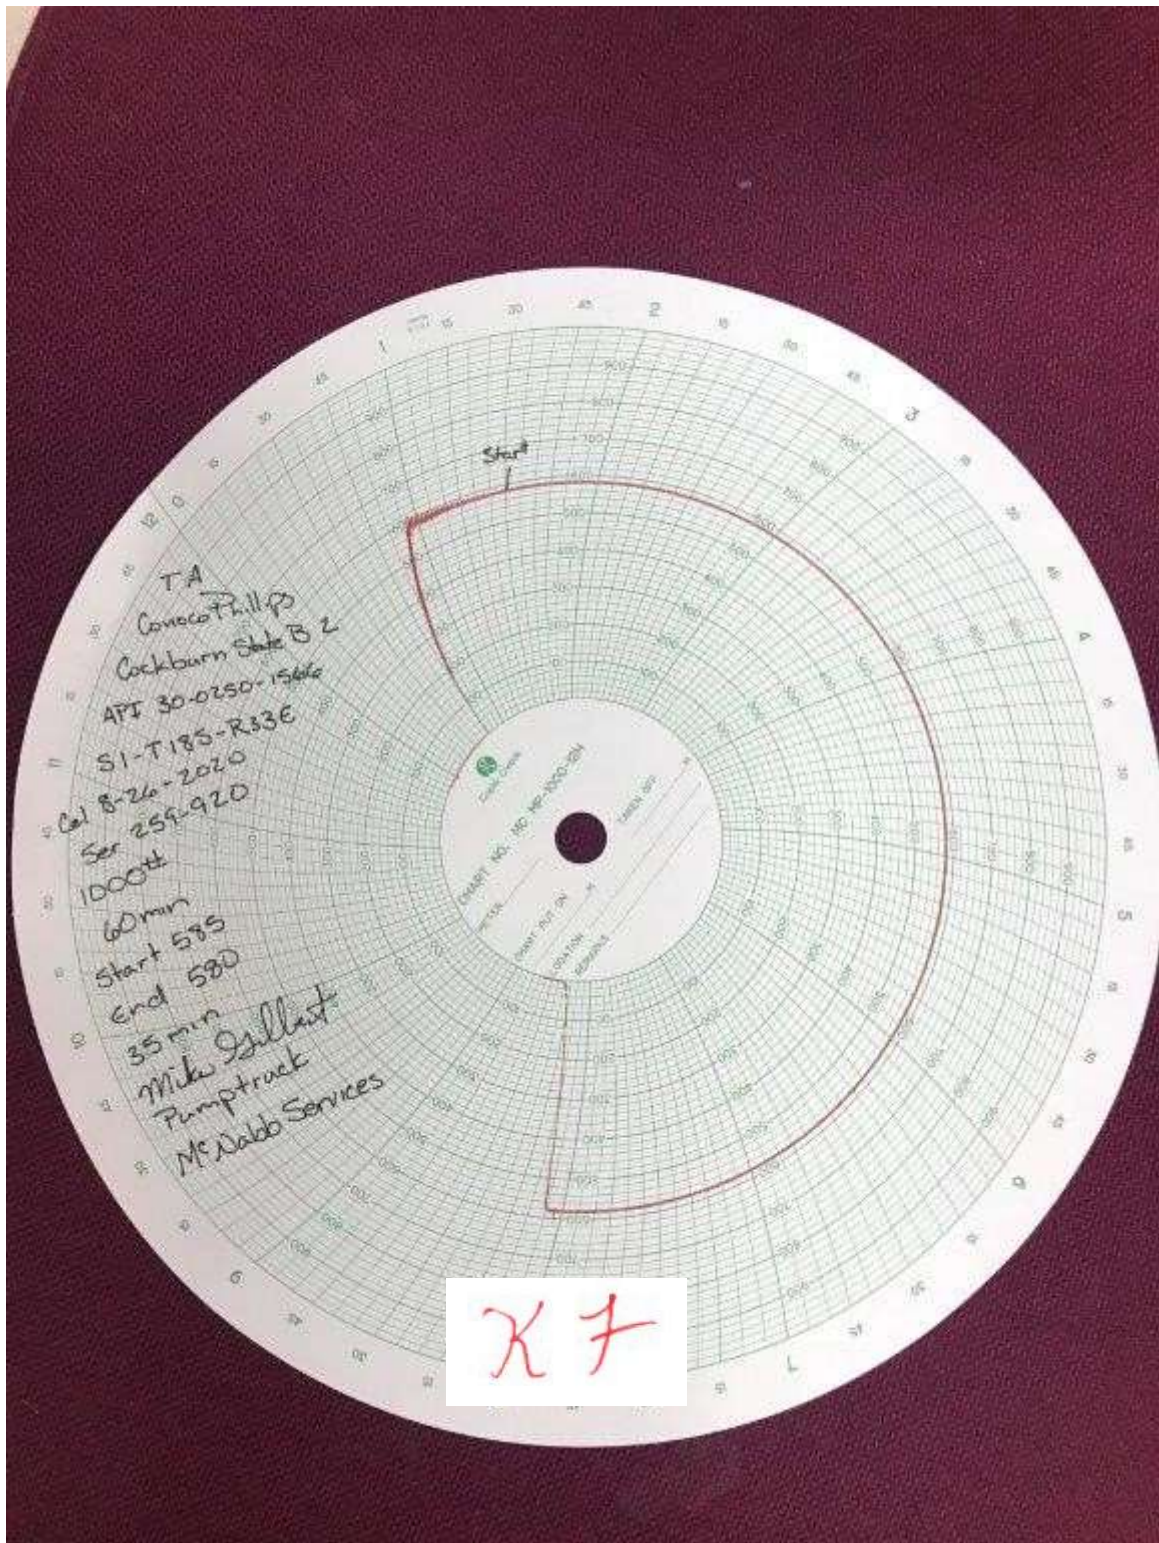 Start
T A
ConocoPhillips
Cockburn State B 2
API 30-0250-1566
S1-T18S-R33E
Cal 8-26-2020
Ser 259-920
1000#
60 min
Start 585
End 580
35 min
Mike Gilbert
Pumptruck
McNabb Services
CHART NO. MC MP-1000-12H
METER
CHART PUT ON M
TAKEN OFF M
LOCATION
REMARKS
K F